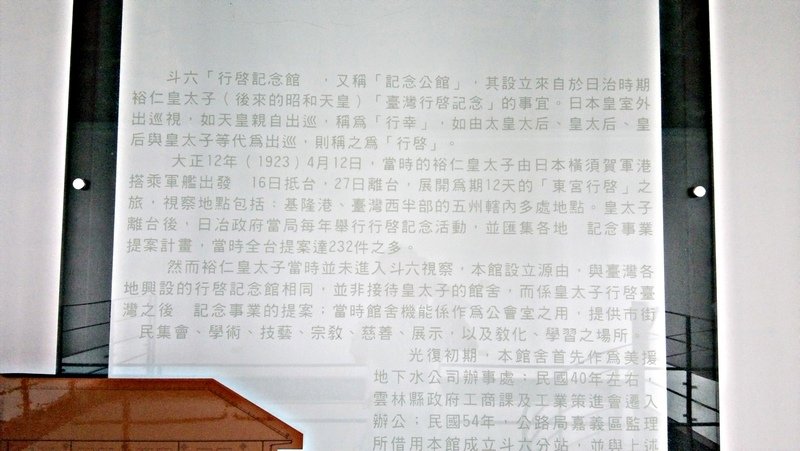 斗六「行啓記念館　，又稱「記念公館」，其設立來自於日治時期
裕仁皇太子（後來的昭和天皇）「臺灣行啓記念」的事宜。日本皇室外
出巡視，如天皇親自出巡，稱爲「行幸」，如由太皇太后、皇太后、皇
后與皇太子等代爲出巡，則稱之爲「行啓」。
大正12年（1923）4月12日，當時的裕仁皇太子由日本橫須賀軍港
搭乘軍艦出發　16日抵台，27日離台，展開爲期12天的「東宮行啓」之
旅，視察地點包括：基隆港、臺灣西半部的五州轄內多處地點。皇太子
離台後，日治政府當局每年舉行行啓記念活動，並匯集各地　記念事業
提案計畫，當時全台提案達232件之多。
然而裕仁皇太子當時並未進入斗六視察，本館設立源由，與臺灣各
地興設的行啓記念館相同，並非接待皇太子的館舍，而係皇太子行啓臺
灣之後　記念事業的提案；當時館舍機能係作爲公會堂之用，提供市街
民集會、學術、技藝、宗敎、慈善、展示，以及敎化、學習之場所。
光復初期，本館舍首先作爲美援
地下水公司辦事處；民國40年左右，
雲林縣政府工商課及工業策進會遷入
辦公；民國54年，公路局嘉義區監理
所借用本館成立斗六分站，並與上述